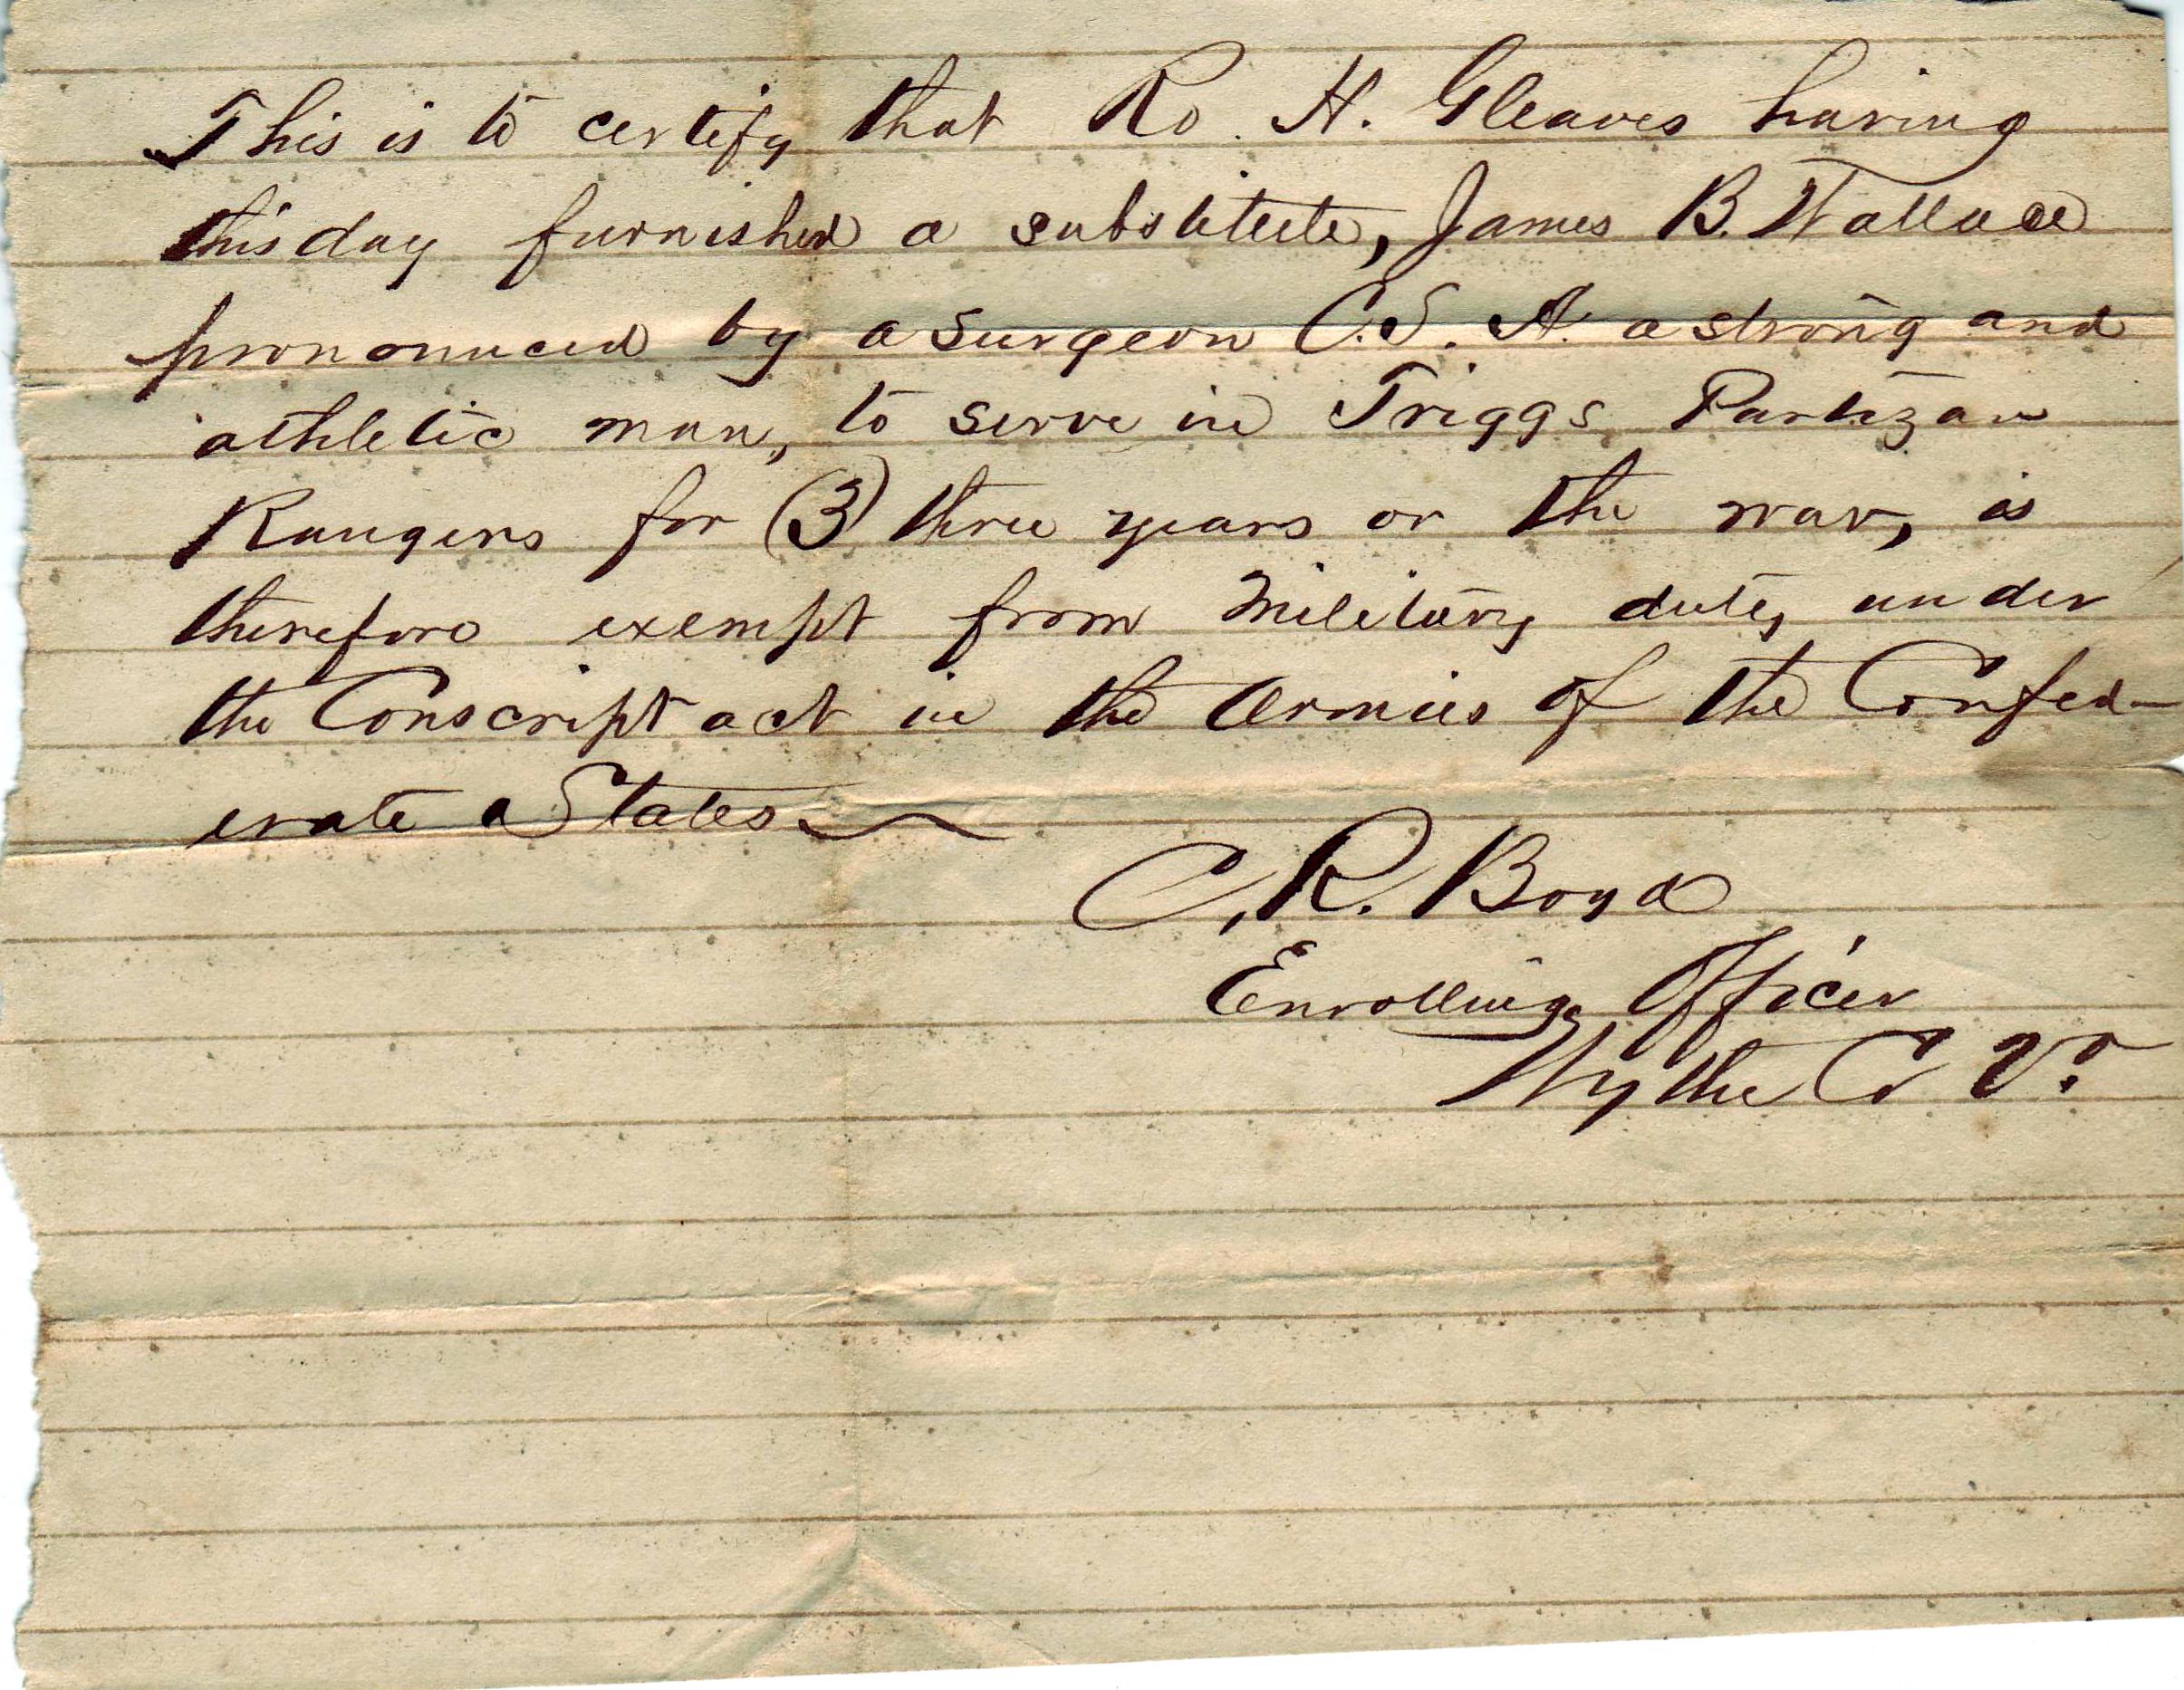 This is to certify that Ro. H. Gleaves having
this day furnished a substitute, James B. Wallace
pronounced by a surgeon C.S.A. a strong and
athletic man, to serve in Triggs Partizan
Rangers for (3) three years or the war, is
therefore exempt from Military duty under
the Conscript act in the Armies of the Confed-
erate States
C. R. Boyd
Enrolling Officer
Wythe Co Va.